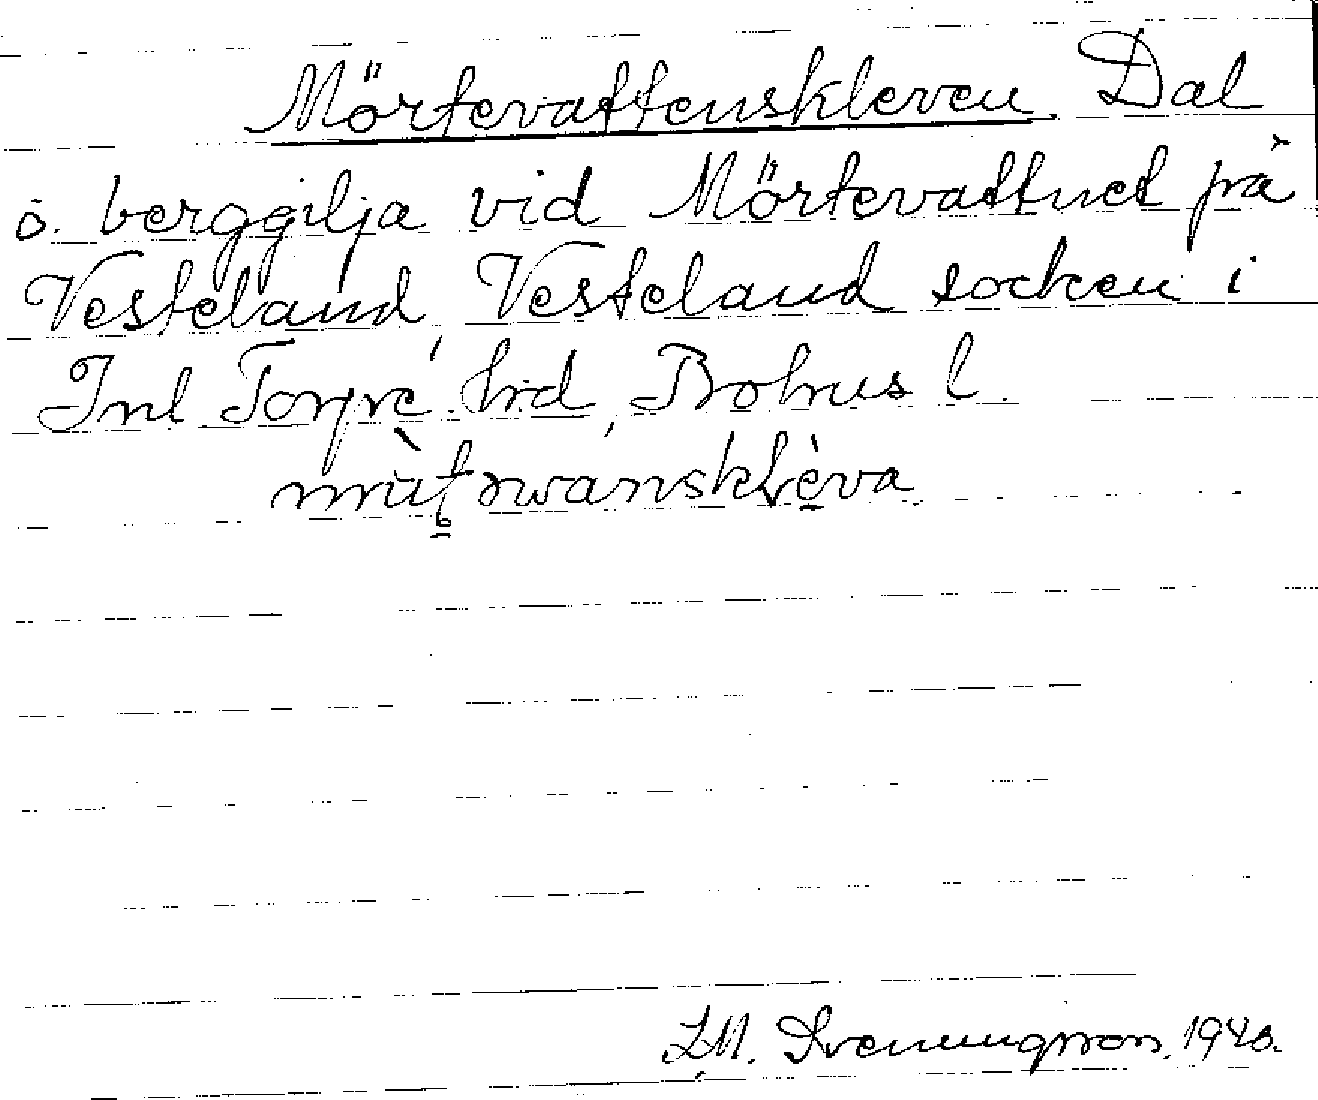 Mörtevattenskleven. Dal
o. berggilja vid Mörtevattnet på
Vesteland, Vesteland socken i
Inl Torpe hrd, Bohus l.
L.M. Svenungsson. 1940.